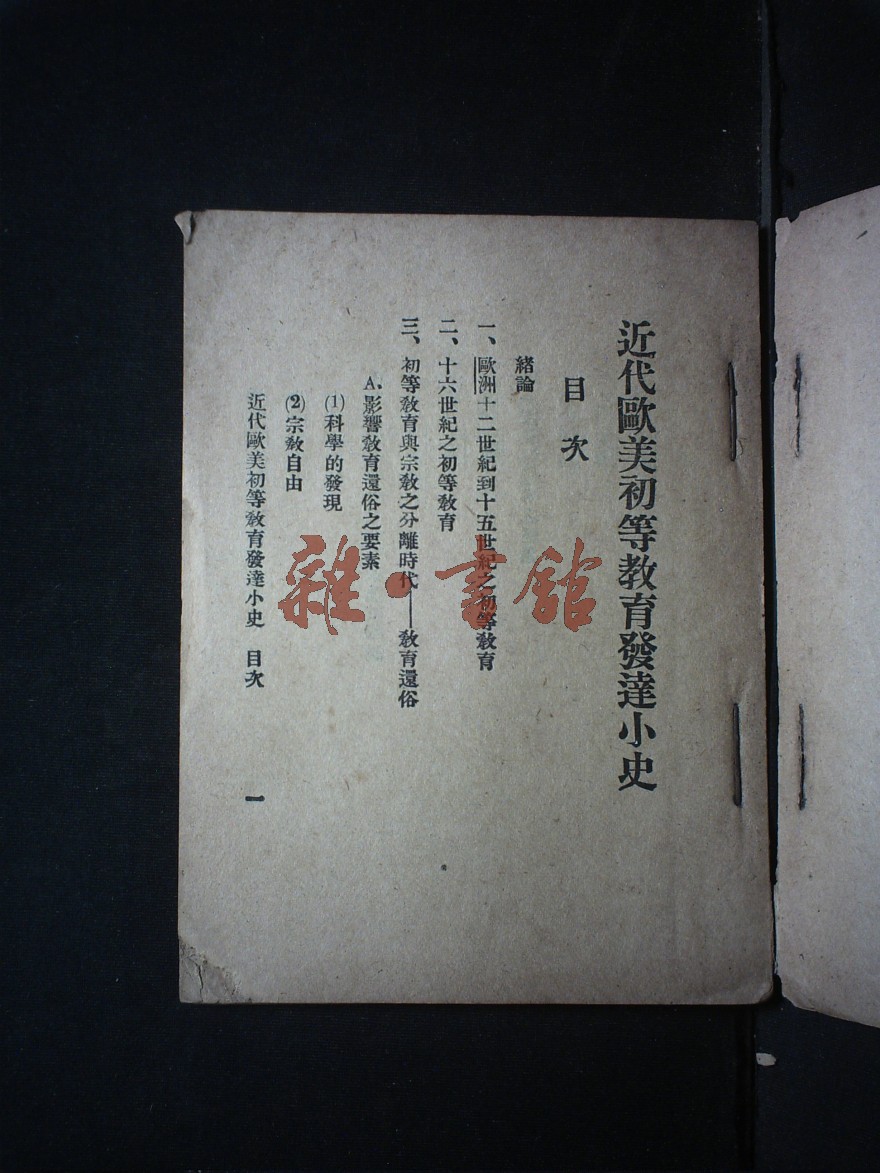 近代歐美初等教育發達小史
目次
緒論
一、歐洲十二世紀到十五世紀之初等教育
二、十六世紀之初等教育
三、初等教育與宗教之分離時代——教育還俗
A.影響教育還俗之要素
(1)科學的發現
(2)宗教自由
近代歐美初等教育發達小史 目次
一
雜·書館